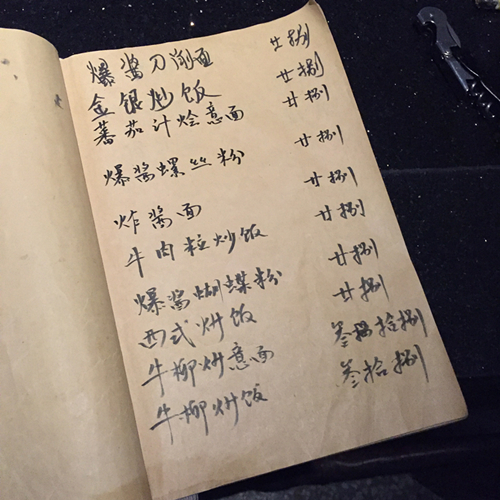 爆酱刀削面 廿捌
金银炒饭 廿捌
蕃茄汁烩意面 廿捌
爆酱螺丝粉 廿捌
炸酱面 廿捌
牛肉粒炒饭 廿捌
爆酱蝴蝶粉 廿捌
西式炒饭 廿捌
牛柳炒意面 叁拾捌
牛柳炒饭 叁拾捌